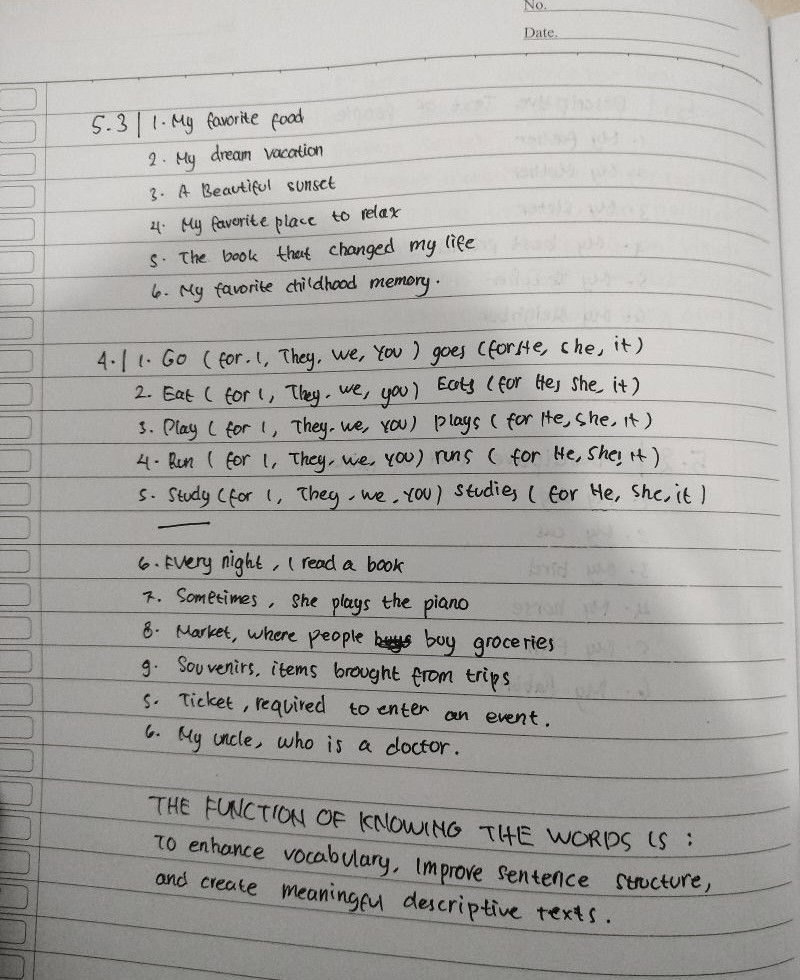 No.
Date.
5.3 | 1. My favorite food
2. My dream vacation
3. A Beautiful sunset
4. My favorite place to relax
5. The book that changed my life
6. My favorite childhood memory.
4. | 1. Go ( for. I, They, we, You ) goes (for He, she, it)
2. Eat ( for I, They, we, you) Eats (for He, She, it)
3. Play ( for I, They, we, YOU) plays ( for He, she, it )
4. Run ( for I, They, we, YOU) runs ( for He, She, it )
5. Study (for I, They, we, YOU) studies ( for He, She, it )
6. Every night, I read a book
7. Sometimes, She plays the piano
8. Market, where people buy groceries
9. Souvenirs, items brought from trips
5. Ticket, required to enter an event.
6. My uncle, who is a doctor.
THE FUNCTION OF KNOWING THE WORDS IS :
To enhance vocabulary, Improve sentence structure,
and create meaningful descriptive texts.